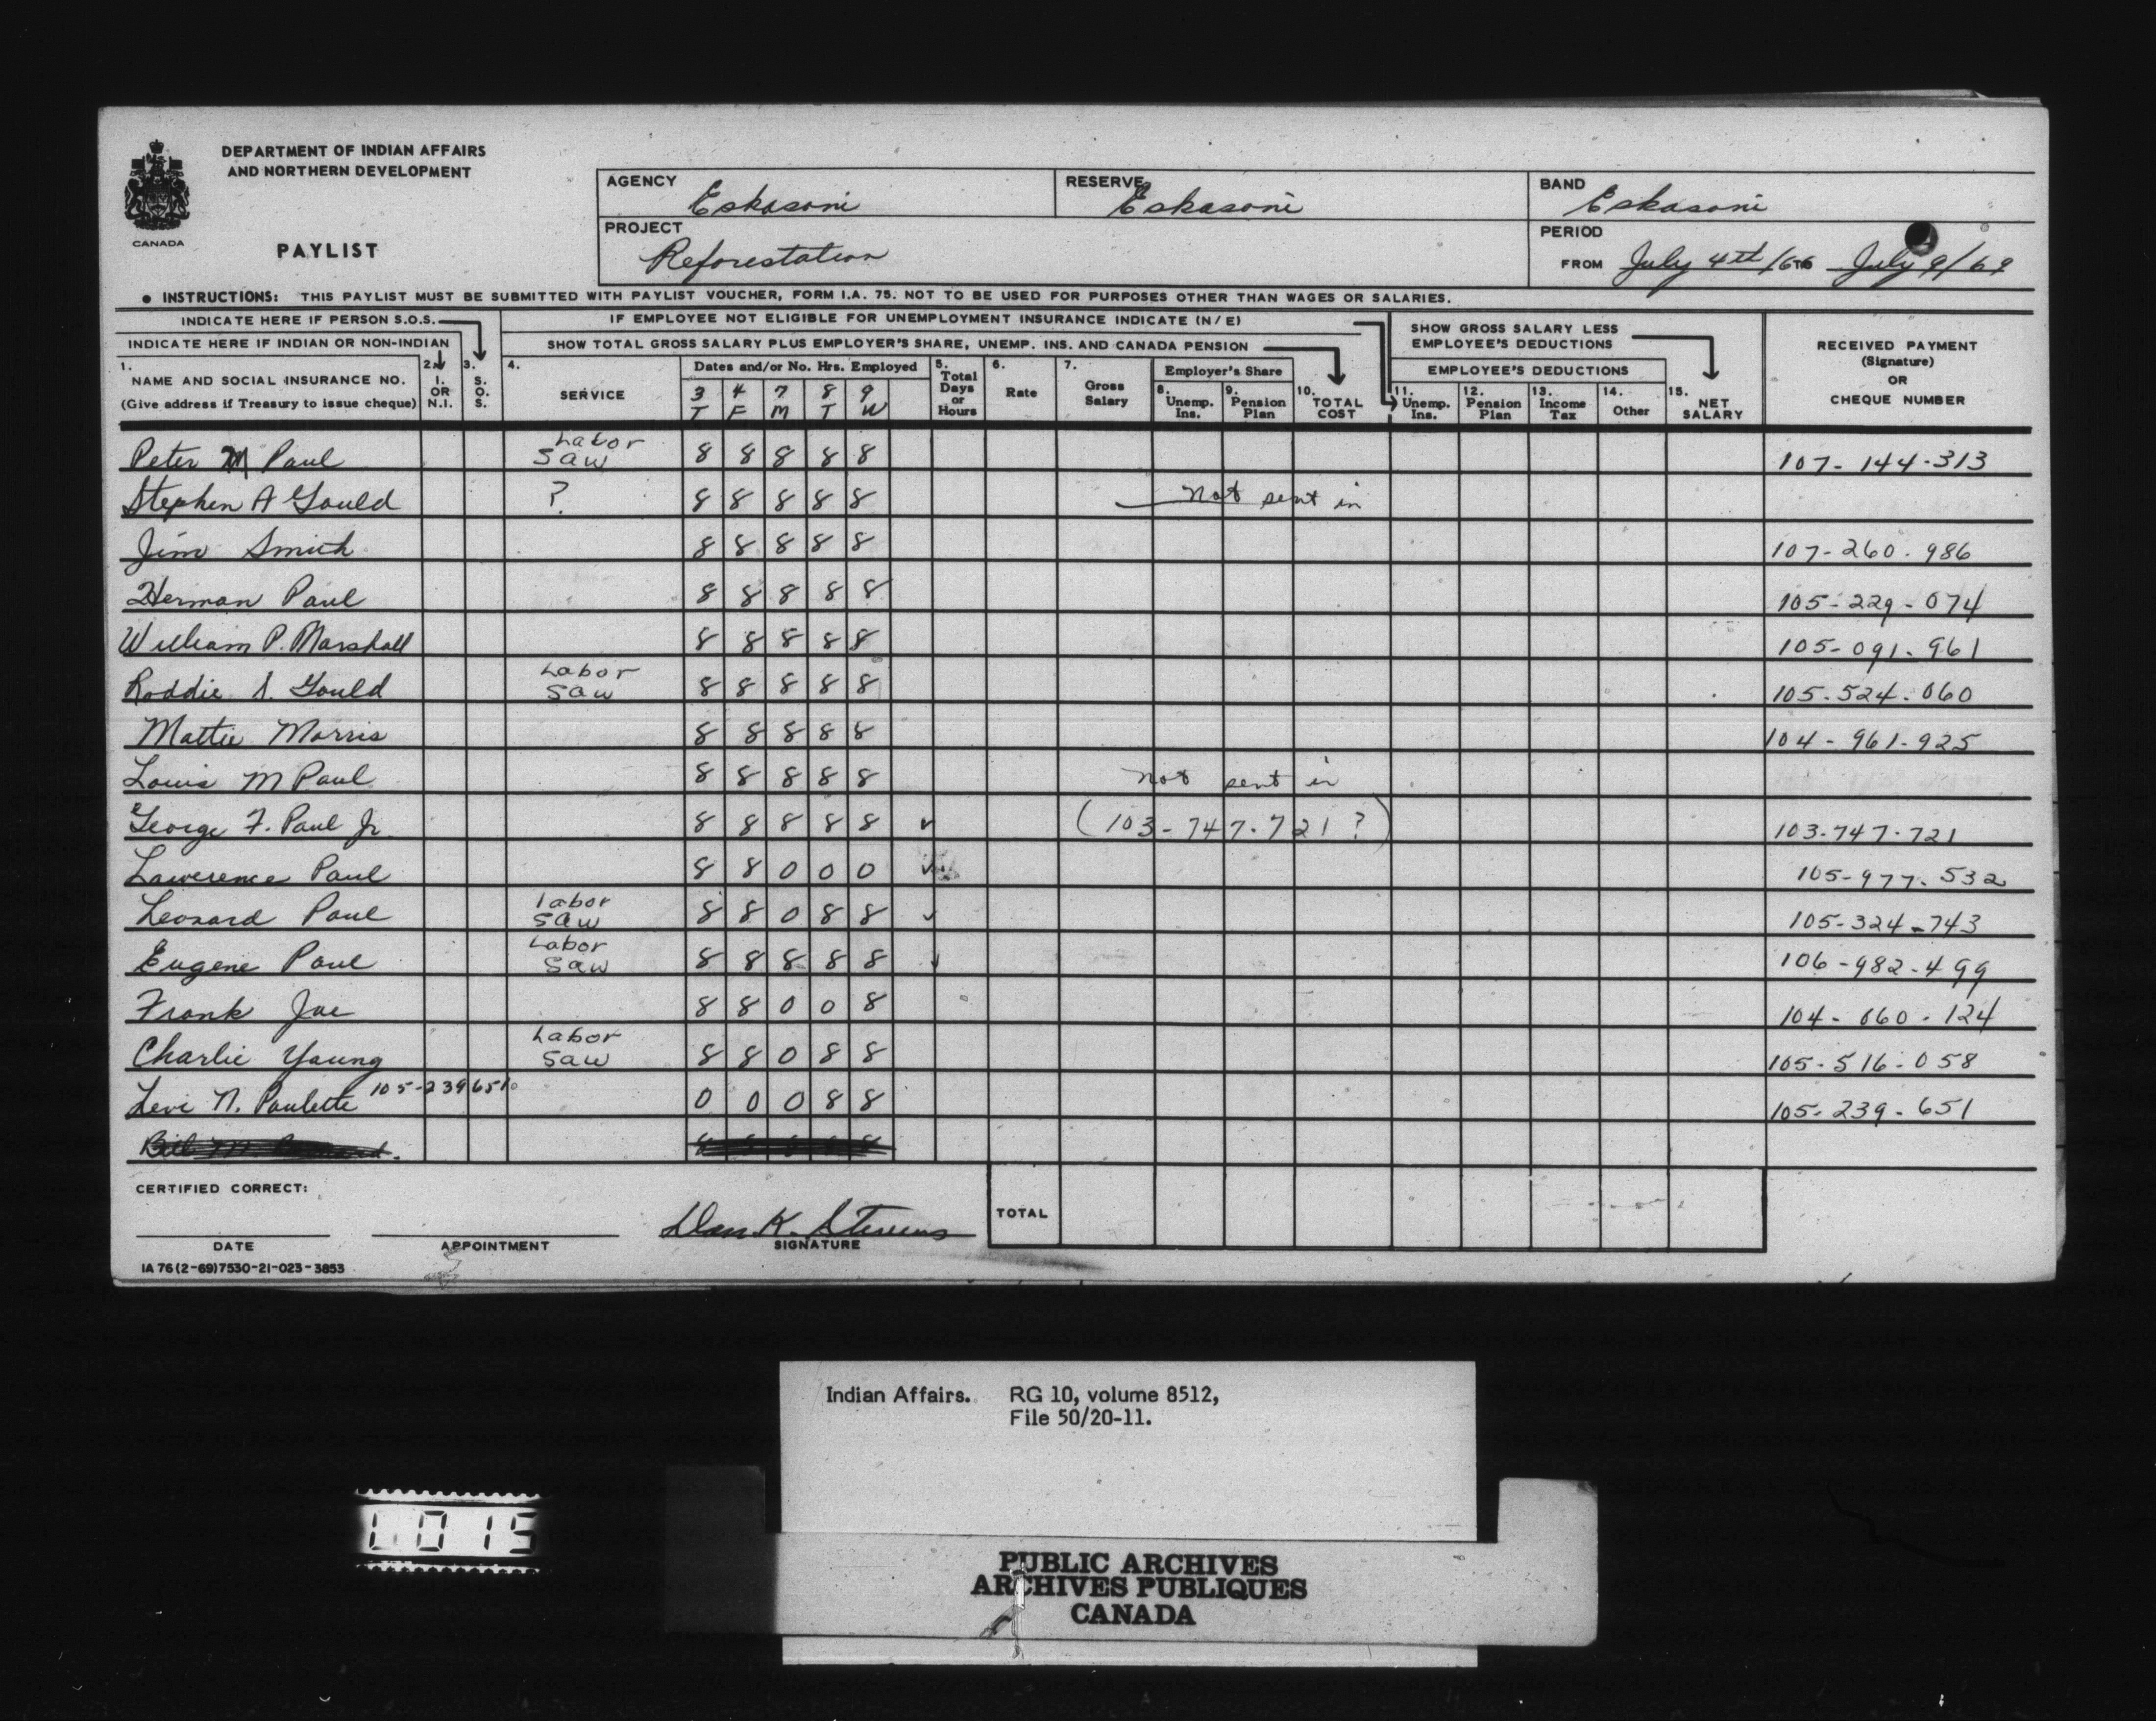 DEPARTMENT OF INDIAN AFFAIRS
AND NORTHERN DEVELOPMENT
CANADA
PAYLIST
AGENCY Eskasoni RESERVE Eskasoni BAND Eskasoni
PROJECT Reforestation PERIOD FROM July 4th/66 TO July 9/69
● INSTRUCTIONS: THIS PAYLIST MUST BE SUBMITTED WITH PAYLIST VOUCHER, FORM I.A. 75. NOT TO BE USED FOR PURPOSES OTHER THAN WAGES OR SALARIES.
INDICATE HERE IF PERSON S.O.S.
INDICATE HERE IF INDIAN OR NON-INDIAN
IF EMPLOYEE NOT ELIGIBLE FOR UNEMPLOYMENT INSURANCE INDICATE (N/E)
SHOW TOTAL GROSS SALARY PLUS EMPLOYER'S SHARE, UNEMP. INS. AND CANADA PENSION
SHOW GROSS SALARY LESS EMPLOYEE'S DEDUCTIONS
1. NAME AND SOCIAL INSURANCE NO. (Give address if Treasury to issue cheque)
2. I. OR N.I.
3. S. O. S.
4. SERVICE
Dates and/or No. Hrs. Employed
3 4 7 8 9
T F M T W
5. Total Days or Hours
6. Rate
7. Gross Salary
Employer's Share
8. Unemp. Ins.
9. Pension Plan
10. TOTAL COST
EMPLOYEE'S DEDUCTIONS
11. Unemp. Ins.
12. Pension Plan
13. Income Tax
14. Other
15. NET SALARY
RECEIVED PAYMENT (Signature) OR CHEQUE NUMBER
Peter M Paul Labor Saw 8 8 8 8 8 107-144-313
Stephen A Gould ? 8 8 8 8 8 Not sent in
Jim Smith 8 8 8 8 8 107-260-986
Herman Paul 8 8 8 8 8 105-229-074
William P. Marshall 8 8 8 8 8 105-091-961
Roddie S. Gould Labor Saw 8 8 8 8 8 105-524-060
Mattie Morris 8 8 8 8 8 104-961-925
Louis M Paul 8 8 8 8 8 not sent in
George F. Paul Jr. 8 8 8 8 8 ✓ (103-747-721?) 103-747-721
Lawerence Paul 8 8 0 0 0 ✓ 105-977-532
Leonard Paul labor saw 8 8 0 8 8 ✓ 105-324-743
Eugene Paul Labor Saw 8 8 8 8 8 ✓ 106-982-499
Frank Joe 8 8 0 0 8 104-060-124
Charlie Young Labor Saw 8 8 0 8 8 105-516-058
Levi N. Paulette 105-239651 0 0 0 8 8 105-239-651
Bill M
CERTIFIED CORRECT:
TOTAL
Dan K. Stevens
DATE APPOINTMENT SIGNATURE
IA 76 (2-69) 7530-21-023-3853
Indian Affairs. RG 10, volume 8512,
File 50/20-11.
L0015
PUBLIC ARCHIVES
ARCHIVES PUBLIQUES
CANADA